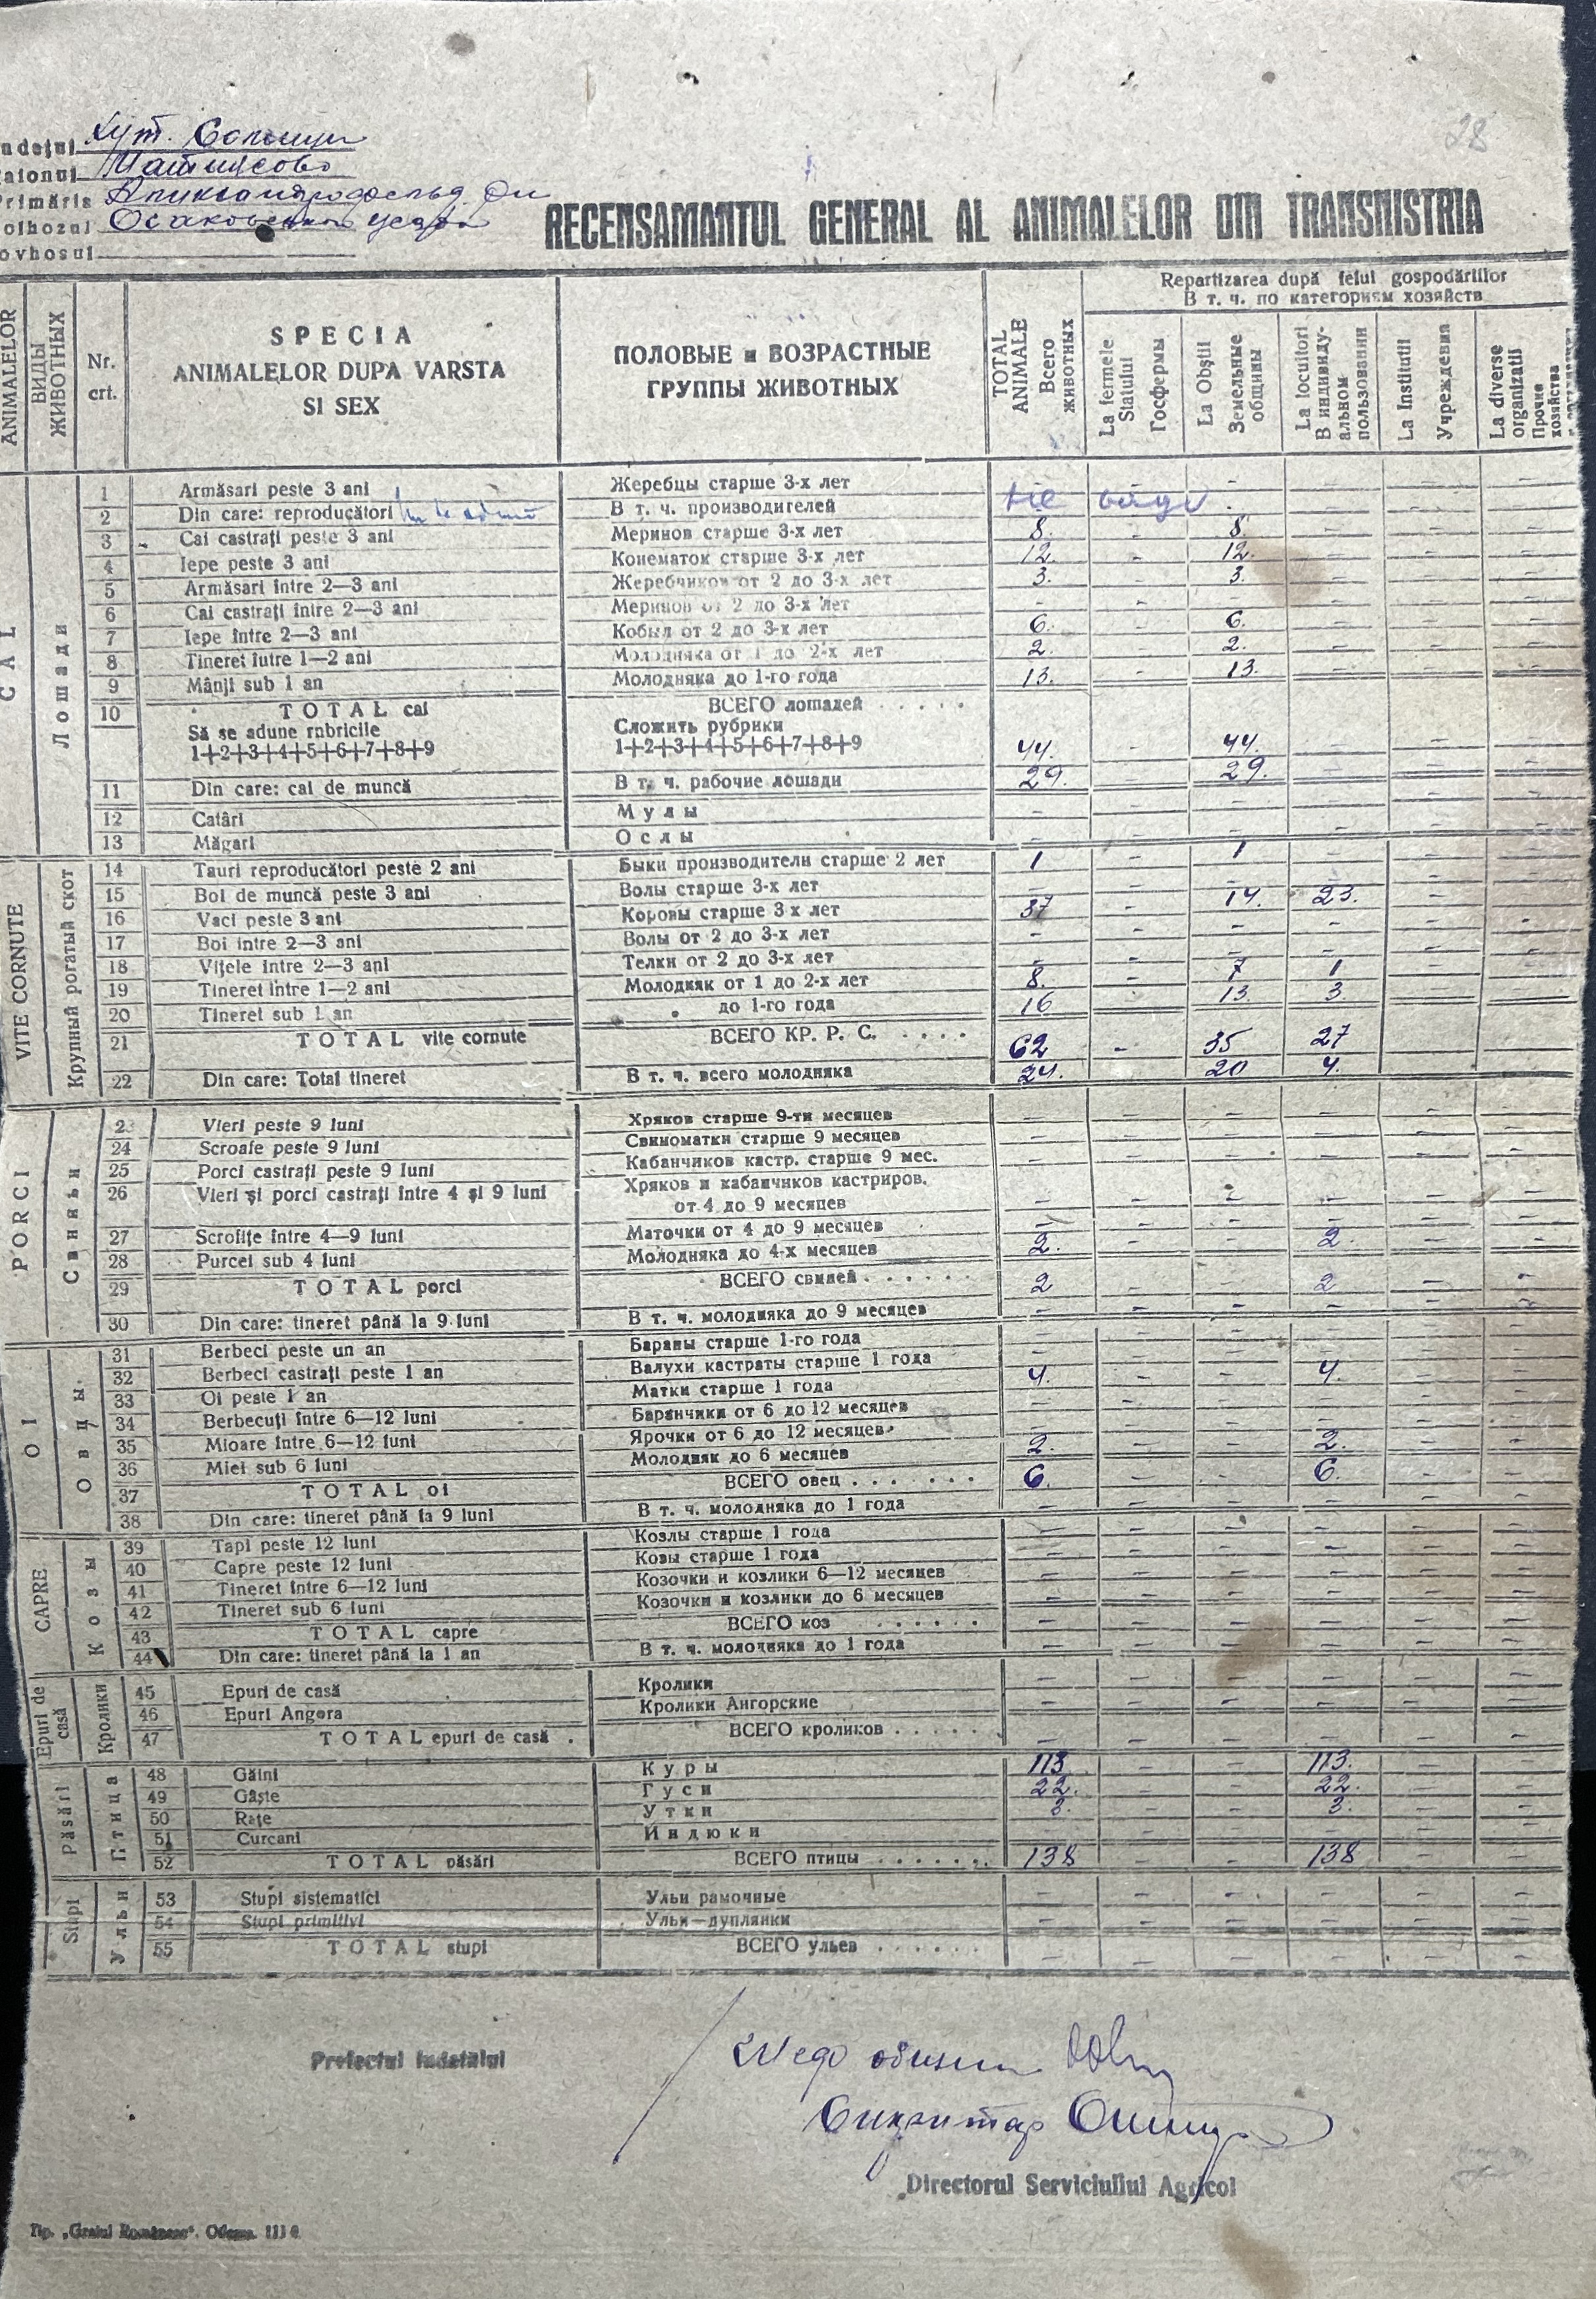 28
udeţul Хут.
aionul
Primăria
olhozul
ovhosul
RECENSAMANTUL GENERAL AL ANIMALELOR DIN TRANSNISTRIA
ANIMALELOR
ВИДЫ ЖИВОТНЫХ
Nr. crt.
SPECIA
ANIMALELOR DUPA VARSTA
SI SEX
ПОЛОВЫЕ и ВОЗРАСТНЫЕ
ГРУППЫ ЖИВОТНЫХ
TOTAL ANIMALE Всего животных
Repartizarea după felul gospodăriilor
В т. ч. по категориям хозяйств
La fermele Statului Госфермы
La Obştii Земельные общины
La locuitori В индивиду-альном пользовании
La Institutii Учреждения
La diverse organizatii Прочие хозяйства
CAL
Лошади
1 Armăsari peste 3 ani Жеребцы старше 3-х лет - - - -
2 Din care: reproducători В т. ч. производителей - - -
3 Cai castraţi peste 3 ani Меринов старше 3-х лет 8. - 8. - - -
4 Iepe peste 3 ani Конематок старше 3-х лет 12. - 12. - - -
5 Armăsari între 2—3 ani Жеребчиков от 2 до 3-х лет 3. - 3. - - -
6 Cai castraţi între 2—3 ani Меринов от 2 до 3-х лет - - - - - -
7 Iepe între 2—3 ani Кобыл от 2 до 3-х лет 6. - 6. - - -
8 Tineret între 1—2 ani Молодняка от 1 до 2-х лет 2. - 2. - - -
9 Mânji sub 1 an Молодняка до 1-го года 13. - 13. - - -
10 TOTAL cai ВСЕГО лошадей . . . . .
Să se adune rubricile Сложить рубрики
1+2+3+4+5+6+7+8+9 1+2+3+4+5+6+7+8+9 44. - 44. - - -
11 Din care: cai de muncă В т. ч. рабочие лошади 29. - 29. - - -
12 Catâri Мулы - - - - - -
13 Măgari Ослы - - - - - -
VITE CORNUTE
Крупный рогатый скот
14 Tauri reproducători peste 2 ani Быки производители старше 2 лет 1 - 1 - - -
15 Boi de muncă peste 3 ani Волы старше 3-х лет - - - - - -
16 Vaci peste 3 ani Коровы старше 3 х лет 37 - 14. 23. - -
17 Boi între 2—3 ani Волы от 2 до 3-х лет - - - - - -
18 Viţele între 2—3 ani Телки от 2 до 3-х лет - - - - - -
19 Tineret între 1—2 ani Молодняк от 1 до 2-х лет 8. - 7 1 - -
20 Tineret sub 1 an „ до 1-го года 16 - 13. 3. - -
21 TOTAL vite cornute ВСЕГО КР. Р. С. . . . . 62 - 35 27
22 Din care: Total tineret В т. ч. всего молодняка 24. 20 4.
PORCI
Свиньи
23 Vieri peste 9 luni Хряков старше 9-ти месяцев - - - - - -
24 Scroafe peste 9 luni Свиноматки старше 9 месяцев - - - - - -
25 Porci castraţi peste 9 luni Кабанчиков кастр. старше 9 мес. - - - - - -
26 Vieri şi porci castraţi între 4 şi 9 luni Хряков и кабанчиков кастриров.
от 4 до 9 месяцев - - - - - -
27 Scrofiţe între 4—9 luni Маточки от 4 до 9 месяцев - - - - - -
28 Purcei sub 4 luni Молодняка до 4-х месяцев 2. - - 2. - -
29 TOTAL porci ВСЕГО свиней . . . . . . 2 2 - -
30 Din care: tineret până la 9 luni В т. ч. молодняка до 9 месяцев - - - - - -
OI
Овцы
31 Berbeci peste un an Бараны старше 1-го года - - - - - -
32 Berbeci castraţi peste 1 an Валухи кастраты старше 1 года - - - - - -
33 Oi peste 1 an Матки старше 1 года 4. - - 4. - -
34 Berbecuţi între 6—12 luni Баранчики от 6 до 12 месяцев - - - - - -
35 Mioare între 6—12 luni Ярочки от 6 до 12 месяцев - - - - - -
36 Miei sub 6 luni Молодняк до 6 месяцев 2. - - 2. - -
37 TOTAL oi ВСЕГО овец . . . . . . . 6. - - 6. - -
38 Din care: tineret până la 9 luni В т. ч. молодняка до 1 года - - - - - -
CAPRE
Козы
39 Tapi peste 12 luni Козлы старше 1 года - - - - - -
40 Capre peste 12 luni Козы старше 1 года - - - - - -
41 Tineret între 6—12 luni Козочки и козлики 6—12 месяцев - - - - - -
42 Tineret sub 6 luni Козочки и козлики до 6 месяцев - - - - - -
43 TOTAL capre ВСЕГО коз . . . . . . - - - - - -
44 Din care: tineret până la 1 an В т. ч. молодняка до 1 года - - - - - -
Epuri de casă
Кролики
45 Epuri de casă Кролики - - - - - -
46 Epuri Angora Кролики Ангорские - - - - - -
47 TOTAL epuri de casă . ВСЕГО кроликов . . . . . - - - - - -
Păsări
Птица
48 Găini Куры 113 - - 113. - -
49 Gâşte Гуси 22. - - 22. - -
50 Raţe Утки 3. - - 3. - -
51 Curcani Индюки - - - - - -
52 TOTAL păsări ВСЕГО птицы . . . . . . . 138 - - 138 - -
Stupi
Ульи
53 Stupi sistematici Ульи рамочные - - - - - -
54 Stupi primitivi Ульи—дуплянки - - - - - -
55 TOTAL stupi ВСЕГО ульев . . . . . . - - - - - -
Prefectul Judeţului
Directorul Serviciului Agricol
Tip. „Graiul Românesc“. Одесса.